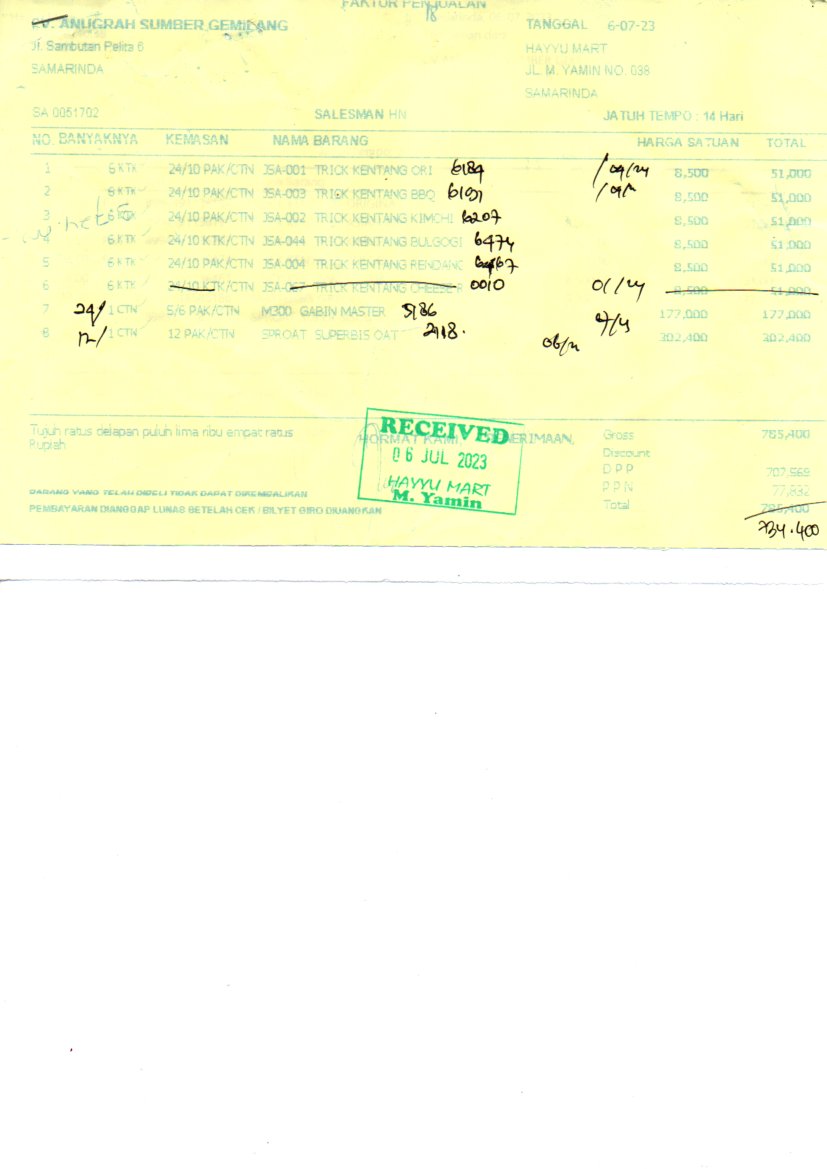 FAKTUR PENJUALAN
CV. ANUGRAH SUMBER GEMILANG TANGGAL 6-07-23
Jl. Sambutan Pelita 6 HAYYU MART
SAMARINDA JL. M. YAMIN NO. 038
SAMARINDA
SA 0051702 SALESMAN HN JATUH TEMPO : 14 Hari
NO. BANYAKNYA KEMASAN NAMA BARANG HARGA SATUAN TOTAL
1 6 KTK 24/10 PAK/CTN JSA-001 TRICK KENTANG ORI 6189 8,500 51,000
2 6 KTK 24/10 PAK/CTN JSA-003 TRICK KENTANG BBQ 8,500 51,000
3 6 KTK 24/10 PAK/CTN JSA-002 TRICK KENTANG KIMCHI 6207 8,500 51,000
4 6 KTK 24/10 KTK/CTN JSA-044 TRICK KENTANG BULGOGI 6474 8,500 51,000
5 6 KTK 24/10 PAK/CTN JSA-004 TRICK KENTANG RENDANG 8,500 51,000
6 6 KTK 24/10 KTK/CTN JSA-067 TRICK KENTANG CHEESE 0010 01/24 8,500 51,000
7 24/ 1 CTN 5/6 PAK/CTN M300 GABIN MASTER 5186 177,000 177,000
8 12/ 1 CTN 12 PAK/CTN SPROAT SUPERBIS OAT 302,400 302,400
Tujuh ratus delapan puluh lima ribu empat ratus
Rupiah
HORMAT KAMI PENERIMAAN,
RECEIVED
06 JUL 2023
HAYYU MART
M. Yamin
Gross 785,400
Discount
D P P 707,569
P P N 77,832
Total 785,400
734.400
BARANG YANG TELAH DIBELI TIDAK DAPAT DIKEMBALIKAN
PEMBAYARAN DIANGGAP LUNAS SETELAH CEK / BILYET GIRO DIUANGKAN